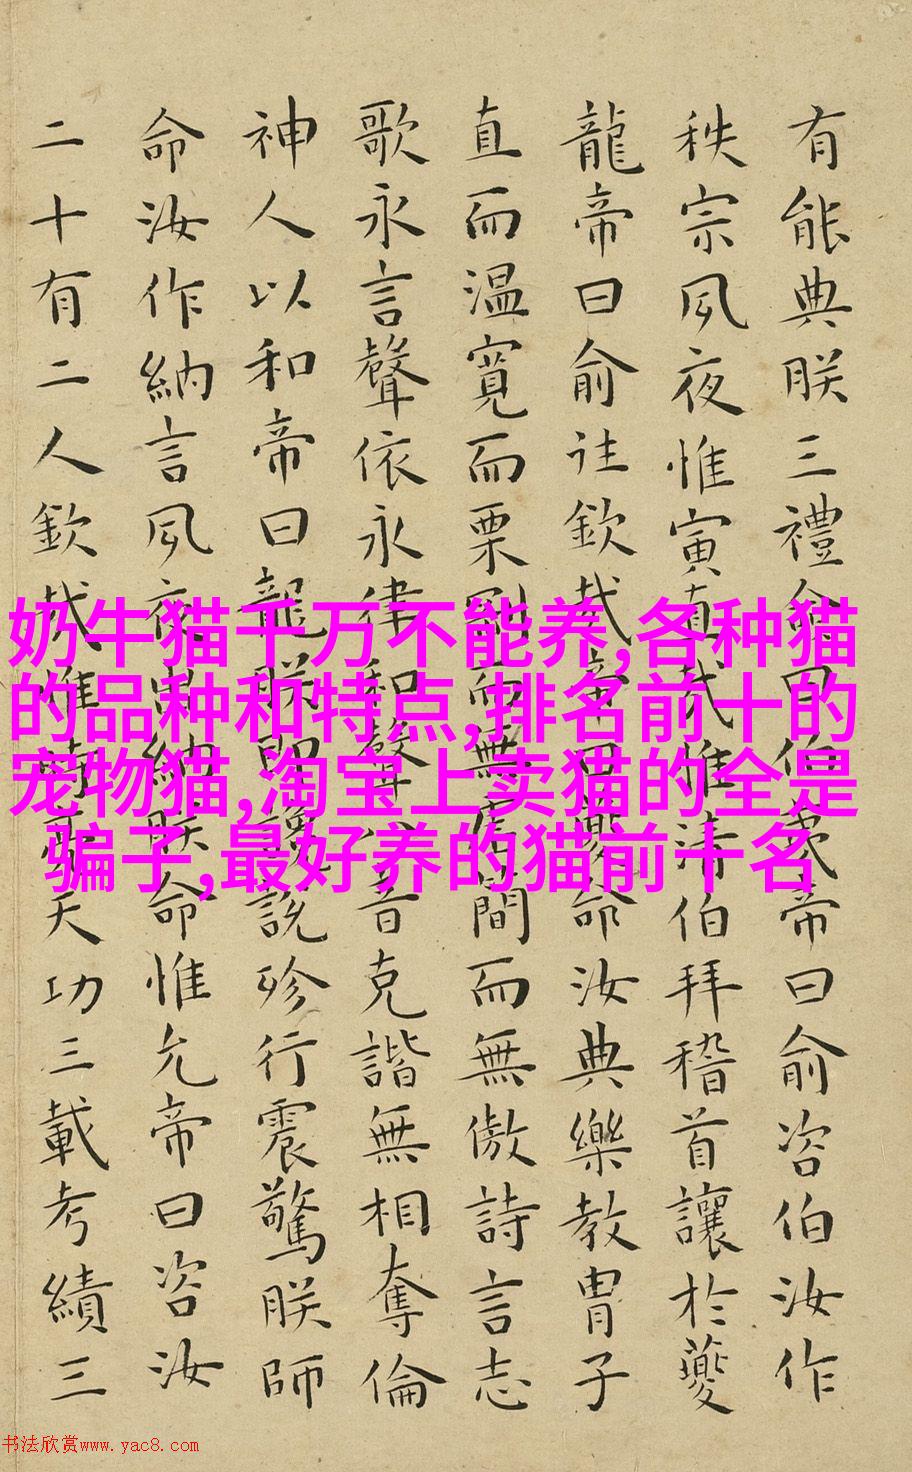 有能典朕三禮僉曰伯夷帝曰俞咨伯汝作
秩宗夙夜惟寅直哉惟清伯拜稽首讓於夔
龍帝曰俞往欽哉帝曰夔命汝典樂教胄子
直而温寬而栗剛而無虐簡而無傲詩言志
歌永言聲依永律和聲八音克諧無相奪倫
神人以和帝曰龍朕堲讒說殄行震驚朕師
命汝作納言夙夜出納朕命惟允帝曰咨汝
二十有二人欽哉惟時亮天功三載考績三
奶牛猫千万不能养,各种猫
的品种和特点,排名前十的
宠物猫,淘宝上卖猫的全是
骗子,最好养的猫前十名
书法欣赏www.yac8.com